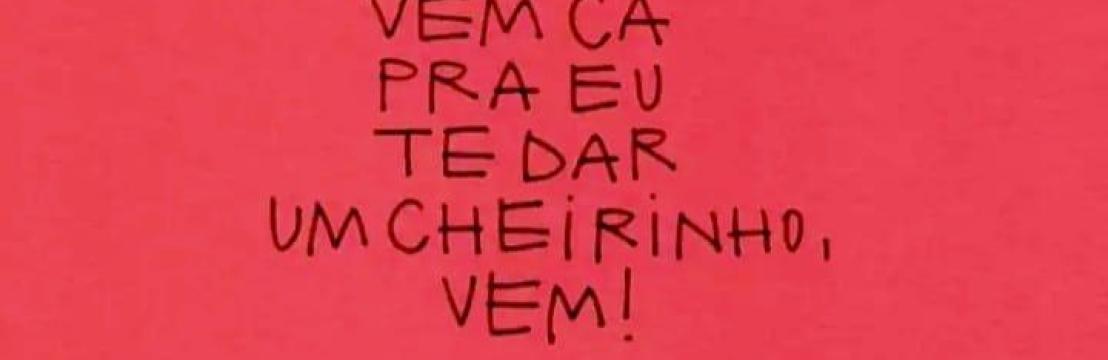 VEM CA
PRA EU
TE DAR
UM CHEiRiNHO,
VEM!